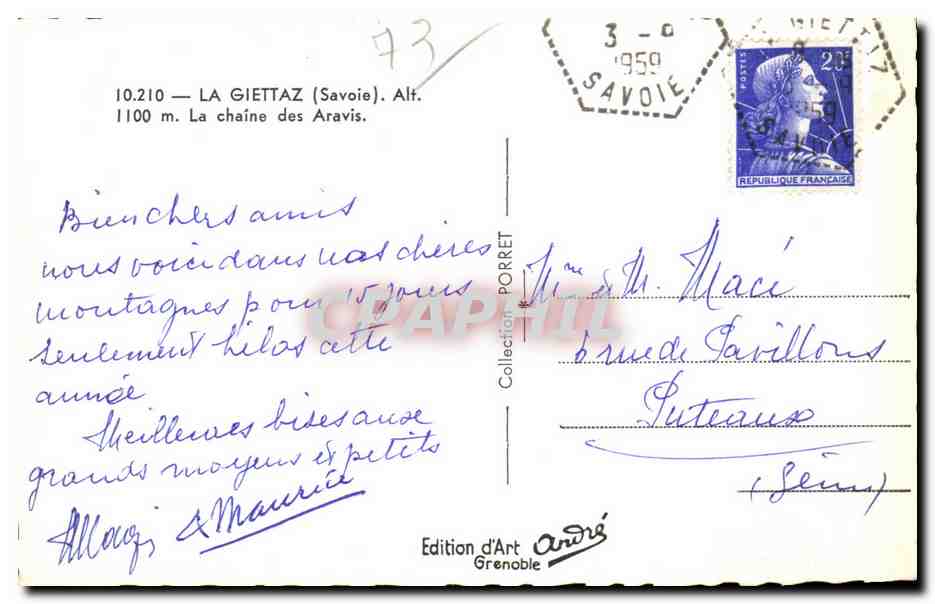 73
10.210 — LA GIETTAZ (Savoie). Alt.
1100 m. La chaîne des Aravis.
3 - 8
1959
SAVOIE
GIETTAZ
1959
SAVOIE
POSTES
20F
REPUBLIQUE FRANÇAISE
Bien chers amis
nous voici dans nos chères
montagnes pour 15 jours
seulement hélas cette
année
Meilleures bises aux
grands moyens et petits
& Maurice
Collection * PORRET
CPAPHIL
Mme & M. Macé
6 rue de Pavillons
Puteaux
(Seine)
Edition d'Art André
Grenoble